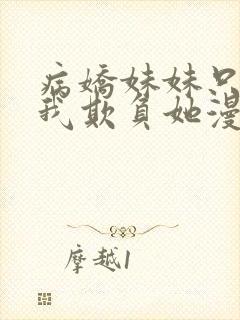 病嬌妹妹只
我欺負她漫
摩越1